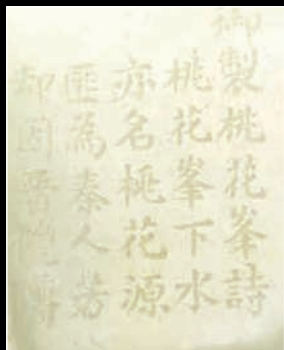 御製桃花峯詩
桃花峯下水
亦名桃花源
匪為秦人若
却因晋